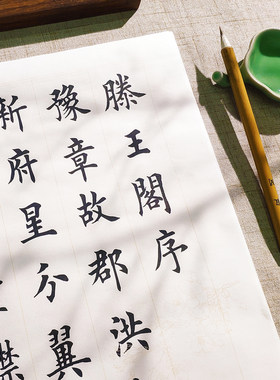 滕王閣序
豫章故郡洪
新府星分翼
襟